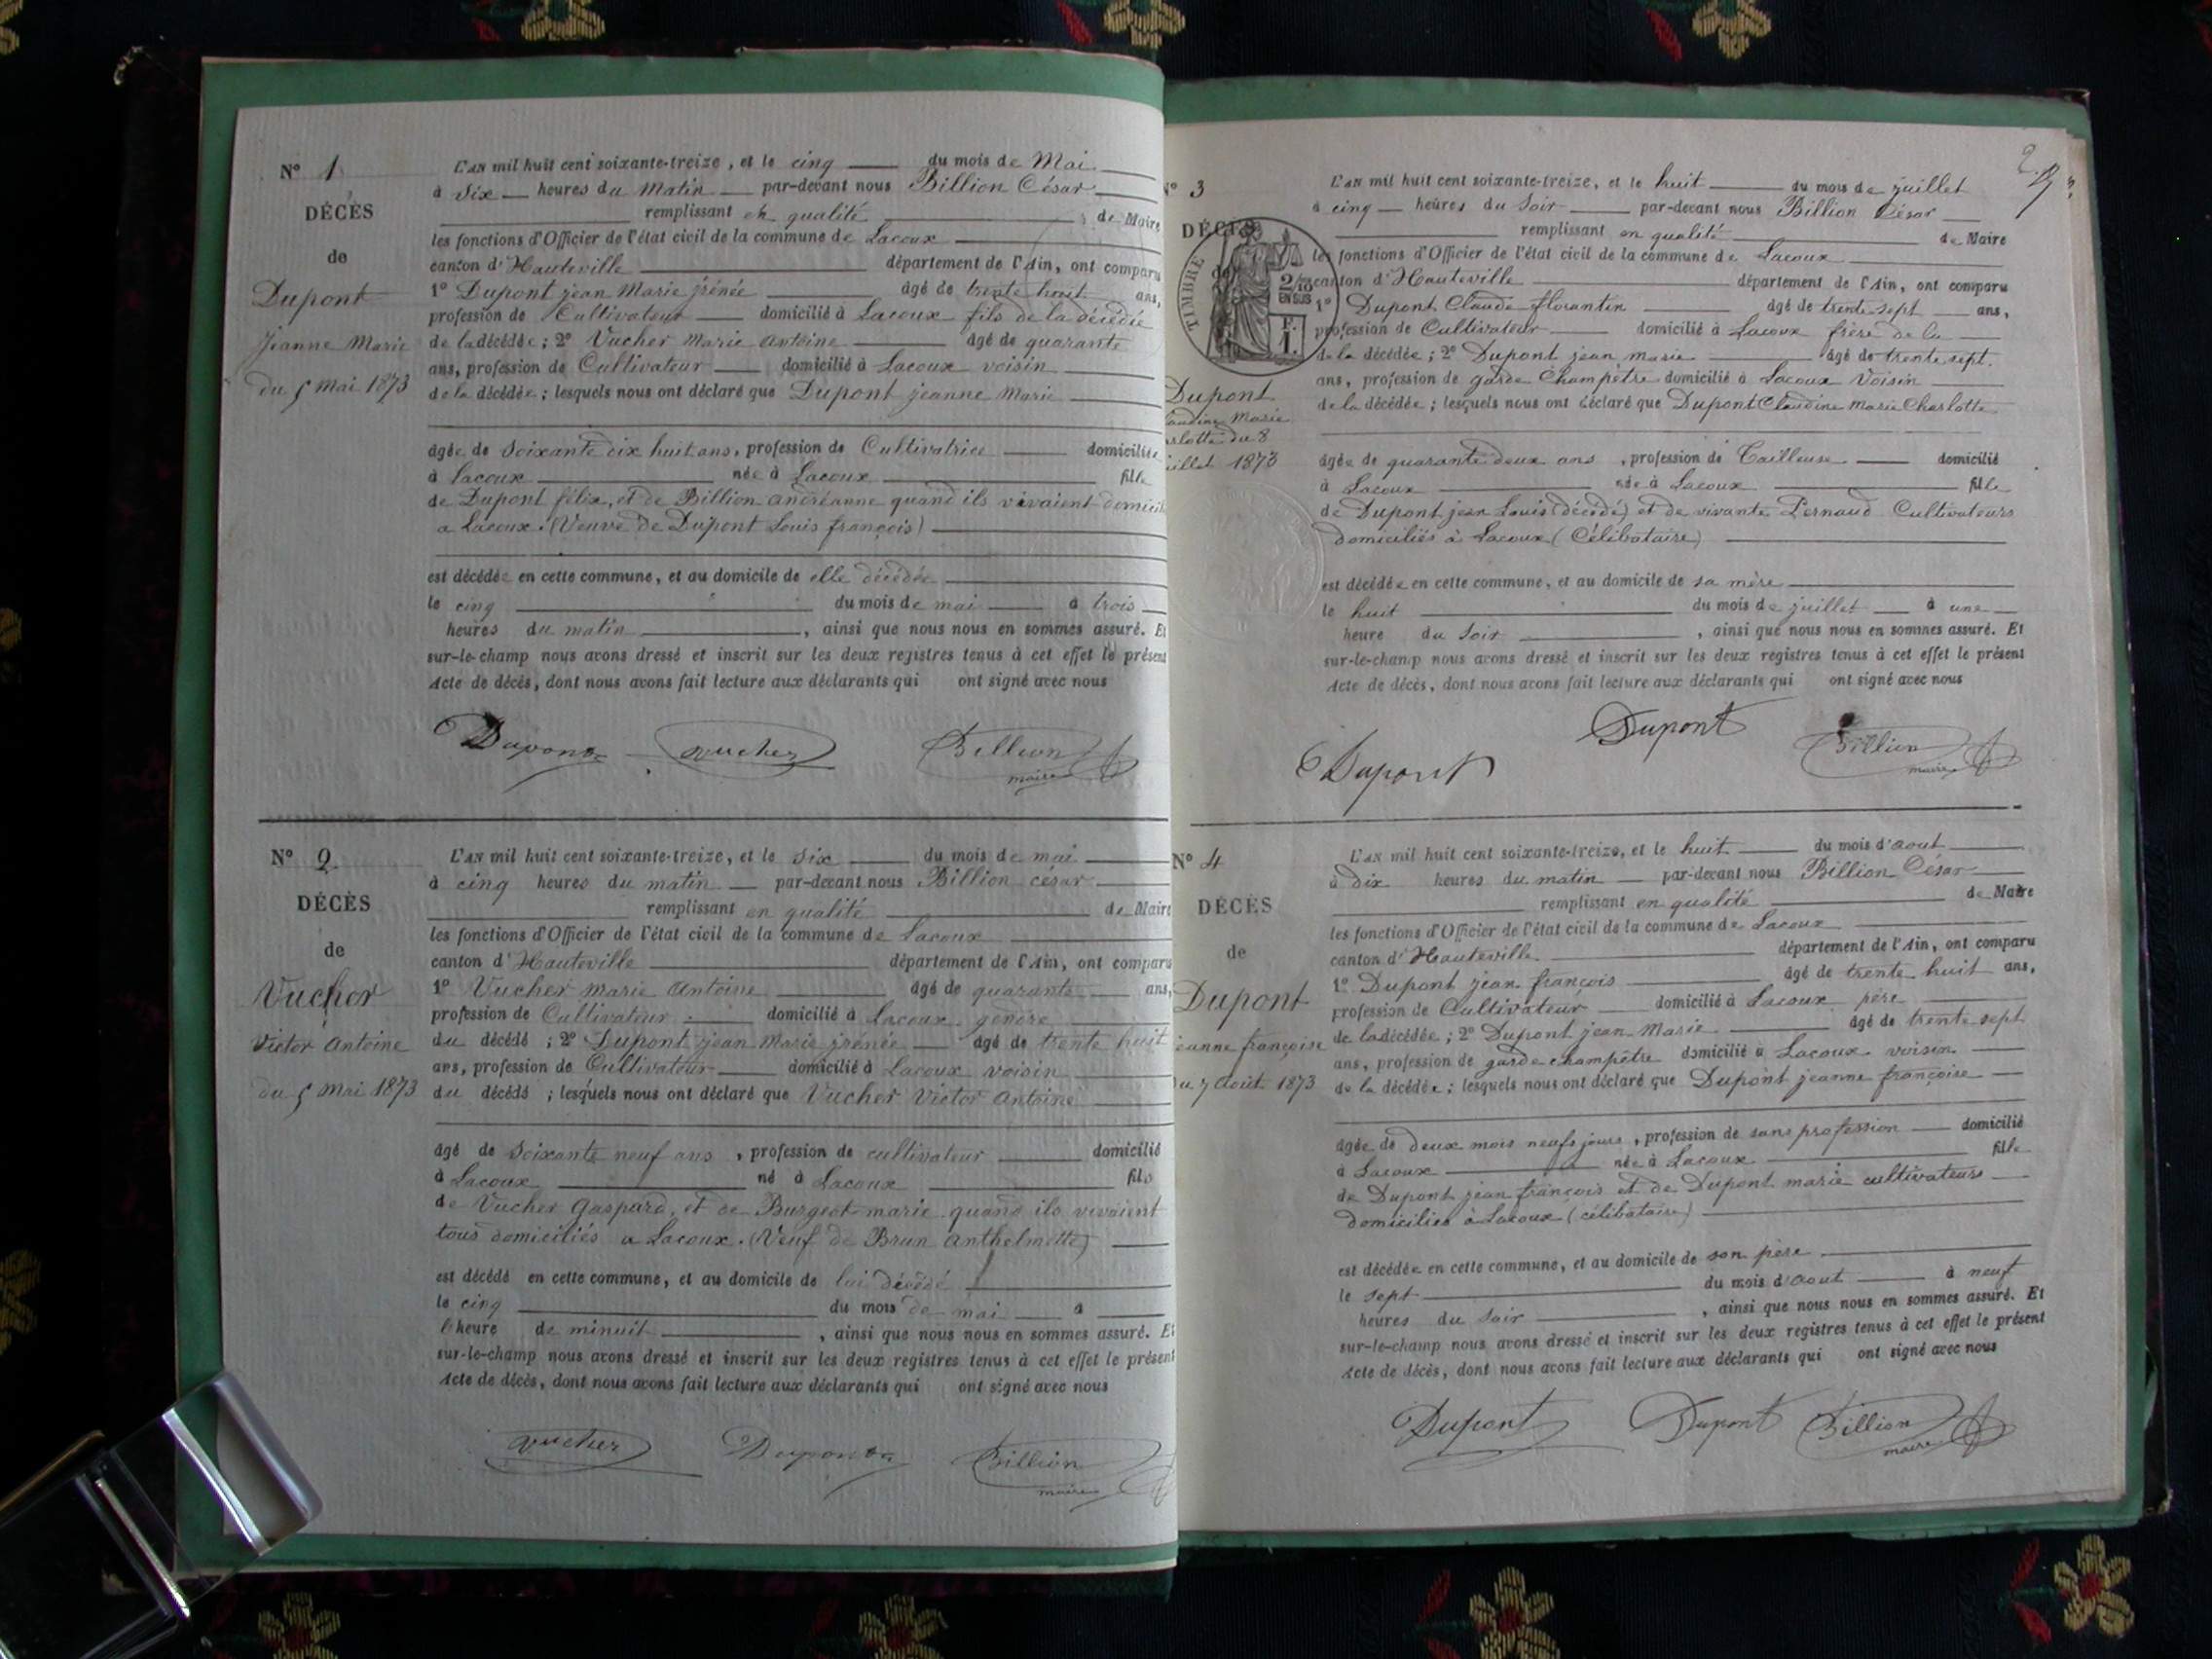 N° 1
DÉCÈS
de
Dupont
Jeanne Marie
du 5 mai 1873
L'AN mil huit cent soixante-treize, et le cinq du mois de Mai
à six heures du Matin par-devant nous Billion César
remplissant en qualité de Maire
les fonctions d'Officier de l'état civil de la commune de Lacoux
canton d'Hauteville département de l'Ain, ont comparu
1° Dupont jean Marie jrénée âgé de trente huit ans,
profession de Cultivateur domicilié à Lacoux fils de la décédée
de la décédée; 2° Vucher Marie Antoine âgé de quarante
ans, profession de Cultivateur domicilié à Lacoux voisin
de la décédée; lesquels nous ont déclaré que Dupont jeanne Marie
âgée de soixante dix huit ans, profession de Cultivatrice domiciliée
à lacoux née à Lacoux fille
de Dupont félix, et de Billion andréanne quand ils vivaient
a Lacoux. (Veuve de Dupont Louis françois)
est décédée en cette commune, et au domicile de elle décédée
le cinq du mois de mai à trois
heures du matin, ainsi que nous nous en sommes assuré. Et
sur-le-champ nous avons dressé et inscrit sur les deux registres tenus à cet effet le présent
Acte de décès, dont nous avons fait lecture aux déclarants qui ont signé avec nous
Dupont Vucher Billion
maire
N° 2
DÉCÈS
de
Vucher
Victor Antoine
du 5 Mai 1873
L'AN mil huit cent soixante-treize, et le six du mois de mai
à cinq heures du matin par-devant nous Billion césar
remplissant en qualité de Maire
les fonctions d'Officier de l'état civil de la commune de Lacoux
canton d'Hauteville département de l'Ain, ont comparu
1° Vucher marie Antoine âgé de quarante ans,
profession de Cultivateur domicilié à Lacoux gendre
du décédé; 2° Dupont jean Marie jrénée âgé de trente huit
ans, profession de Cultivateur domicilié à Lacoux voisin
du décédé; lesquels nous ont déclaré que Vucher Victor Antoine
âgé de soixante neuf ans, profession de cultivateur domicilié
à Lacoux né à Lacoux fils
de Vucher Gaspard, et de Burgeot marie quand ils vivaient
tous domiciliés a Lacoux. (Veuf de Brun Anthelmette)
est décédé en cette commune, et au domicile de lui décédé
le cinq du mois de mai à
l'heure de minuit, ainsi que nous nous en sommes assuré. Et
sur-le-champ nous avons dressé et inscrit sur les deux registres tenus à cet effet le présent
Acte de décès, dont nous avons fait lecture aux déclarants qui ont signé avec nous
Vucher Dupont Billion
maire
2
N° 3
DÉCÈS
de
TIMBRE
2/10
EN SUS
Dupont
Marie
du 8
1873
L'AN mil huit cent soixante-treize, et le huit du mois de juillet
à cinq heures du soir par-devant nous Billion César
remplissant en qualité de Maire
les fonctions d'Officier de l'état civil de la commune de Lacoux
canton d'Hauteville département de l'Ain, ont comparu
1° Dupont Claude florantin âgé de trente sept ans,
profession de Cultivateur domicilié à Lacoux frère de la
de la décédée; 2° Dupont jean marie âgé de trente sept
ans, profession de garde Champêtre domicilié à Lacoux Voisin
de la décédée; lesquels nous ont déclaré que Dupont Claudine Marie Charlotte
âgée de quarante deux ans, profession de Tailleuse domicilié
à Lacoux née à Lacoux fille
de Dupont jean Louis (décédé) et de vivante Pernaud Cultivateurs
domiciliés à Lacoux (Célibataire)
est décédée en cette commune, et au domicile de sa mère
le huit du mois de juillet à une
heure du soir, ainsi que nous nous en sommes assuré. Et
sur-le-champ nous avons dressé et inscrit sur les deux registres tenus à cet effet le présent
Acte de décès, dont nous avons fait lecture aux déclarants qui ont signé avec nous
Dupont Dupont Billion
maire
N° 4
DÉCÈS
de
Dupont
jeanne françoise
du 7 Août 1873
L'AN mil huit cent soixante-treize, et le huit du mois d'aout
à dix heures du matin par-devant nous Billion César
remplissant en qualité de Maire
les fonctions d'Officier de l'état civil de la commune de Lacoux
canton d'Hauteville département de l'Ain, ont comparu
1° Dupont jean françois âgé de trente huit ans,
profession de Cultivateur domicilié à Lacoux père
de la décédée; 2° Dupont jean Marie âgé de trente sept
ans, profession de garde champêtre domicilié à Lacoux voisin
de la décédée; lesquels nous ont déclaré que Dupont jeanne françoise
âgée de deux mois neufs jours, profession de sans profession domicilié
à Lacoux née à Lacoux fille
de Dupont jean françois et de Dupont marie cultivateurs
domiciliés à Lacoux (célibataire)
est décédée en cette commune, et au domicile de son père
le sept du mois d'aout à neuf
heures du soir, ainsi que nous nous en sommes assuré. Et
sur-le-champ nous avons dressé et inscrit sur les deux registres tenus à cet effet le présent
Acte de décès, dont nous avons fait lecture aux déclarants qui ont signé avec nous
Dupont Dupont Billion
maire